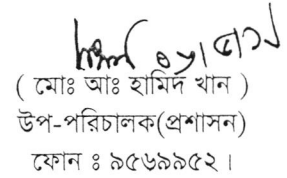 ( মোঃ আঃ হামিদ খান )
উপ-পরিচালক(প্রশাসন)
ফোন ঃ ৯৫৬৯৯৫২ ।